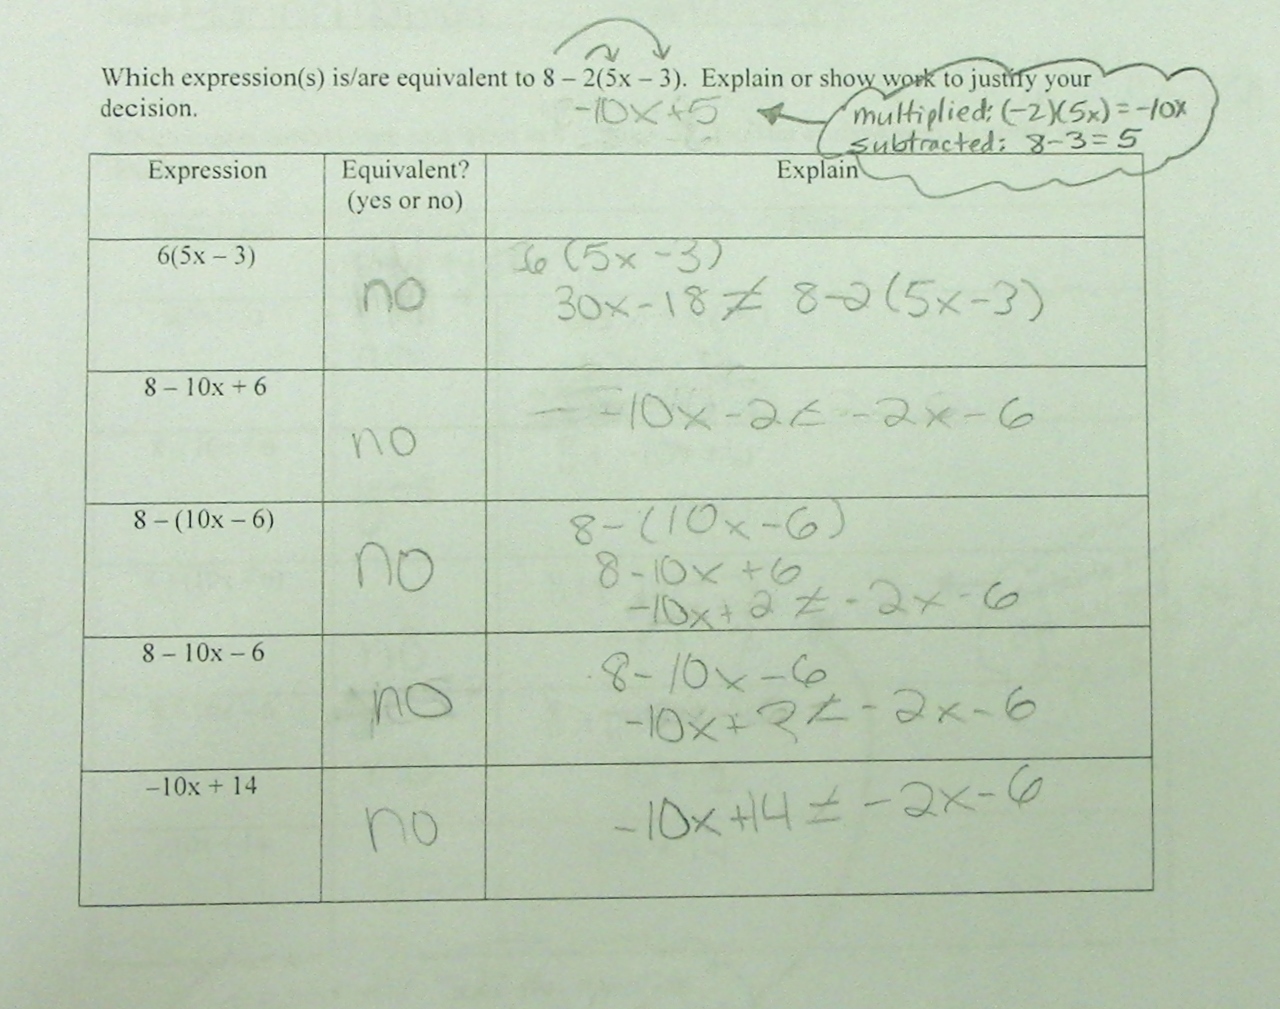 Which expression(s) is/are equivalent to 8 – 2(5x – 3). Explain or show work to justify your
decision.
-10x+5
multiplied: (-2)(5x) = -10x
subtracted: 8-3=5
Expression Equivalent? Explain
(yes or no)
6(5x – 3)
no
6(5x-3)
30x-18 ≠ 8-2(5x-3)
8 – 10x + 6
no
-10x-2 ≠ -2x-6
8 – (10x – 6)
no
8-(10x-6)
8-10x+6
-10x+2 ≠ -2x-6
8 – 10x – 6
no
8-10x-6
-10x+2 ≠ -2x-6
–10x + 14
no
-10x+14 ≠ -2x-6